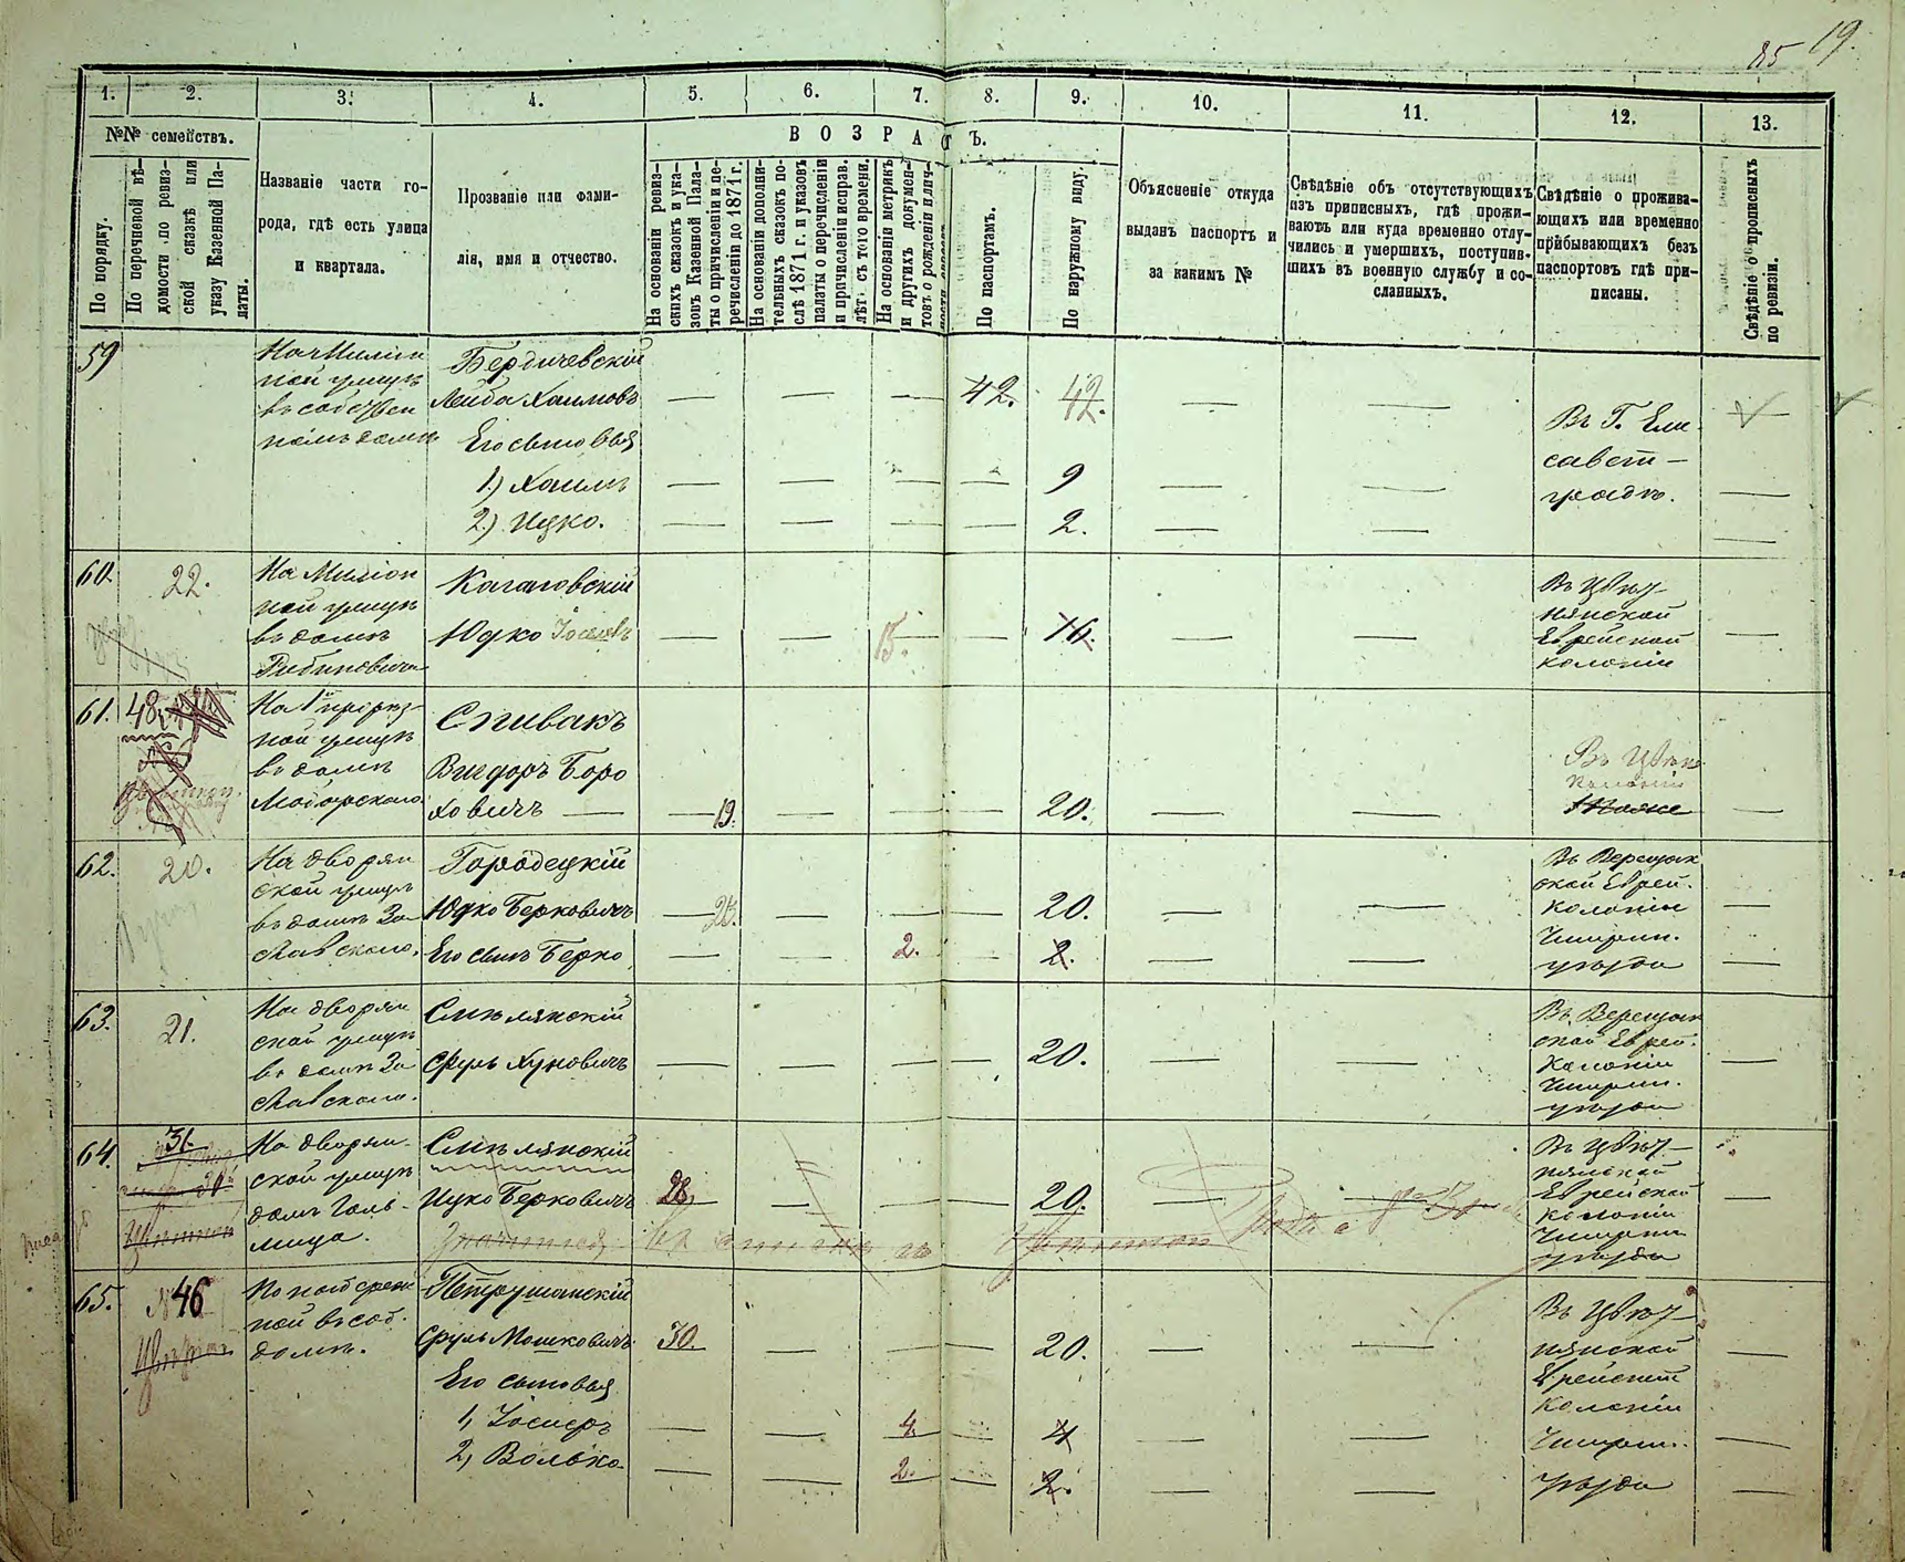 85 19.
1. 2. 3. 4. 5. 6. 7. 8. 9. 10. 11. 12. 13.
№№ семействъ.
ВОЗРАСТЪ.
По порядку.
По перечневой вѣ-
домости по ревиз-
ской сказкѣ или
указу Казенной Па-
латы.
Названіе части го-
рода, гдѣ есть улица
и квартала.
Прозваніе или фами-
лія, имя и отчество.
На основаніи ревиз-
скихъ сказокъ и ука-
зовъ Казенной Пала-
ты о причисленіи и пе-
речисленіи до 1871 г.
На основаніи дополни-
тельныхъ сказокъ по-
слѣ 1871 г. и указовъ
палаты о перечисленіи
и причисленіи исправ.
лѣт. съ того времени.
На основаніи метрикъ
и другихъ докумен-
товъ о рожденіи и лич-
По паспортамъ.
По наружному виду.
Объясненіе откуда
выданъ паспортъ и
за какимъ №
Свѣдѣніе объ отсутствующихъ
изъ приписныхъ, гдѣ прожи-
ваютъ или куда временно отлу-
чились и умершихъ, поступив-
шихъ въ военную службу и со-
сланныхъ.
Свѣдѣніе о прожива-
ющихъ или временно
прибывающихъ безъ
паспортовъ гдѣ при-
писаны.
Свѣдѣніе о прописныхъ
по ревизіи.
59
На Миліон
ной улицѣ
въ собствен
номъ домѣ
Бердичевскій
Лейба Хаимовъ 42. 42.
Его сыновья
1.) Хаимъ 9
2.) Ицко. 2.
Въ Г. Ели
савет-
градѣ.
60. 22.
На Миліон
ной улицѣ
въ домѣ
Рабиновича
Кагановскій
Юдко Іоселевъ 15. 16.
Въ Цвѣт-
нянской
Еврейской
колоніи
61. 48
На 1й прорѣз-
ной улицѣ
въ домѣ
Спивакъ
Вигдоръ Боро
ховичъ 19. 20.
Въ Цвѣтн
колоніи
Тоже
62. 20.
На дворян
ской улицѣ
въ домѣ За
славскаго.
Городецкій
Юдко Берковичъ 25. 20.
Его сынъ Берко 2. 2.
Въ Верещак
ской Еврей.
колоніи
Чигирин.
уѣзда
63. 21.
На дворян
ской улицѣ
въ домѣ За
славскаго.
Смѣлянскій
Сруль Хуновичъ 20.
Въ Верещак
ской Еврей.
Колоніи
Чигирин.
уѣзда
64. 31
На дворян-
ской улицѣ
домъ Галь-
мица.
Смѣлянскій
Ицко Берковичъ 28. 20.
Значится
Въ Цвѣт-
нянской
Еврейской
колоніи
Чигирин
уѣзда
65. № 46
По набереж
ной въ соб.
домѣ.
Петрушанскій
Сруль Мошковичъ 30. 20.
Его сыновья
1, Іосифъ 4. 4
2, Волько. 2. 2.
Въ Цвѣт-
нянской
Еврейской
Колоніи
Чигирин.
уѣзда